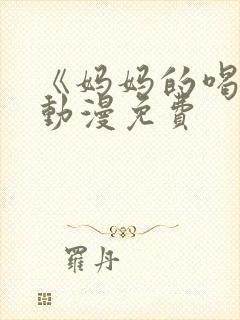 《妈妈的喝
動漫免費
羅丹